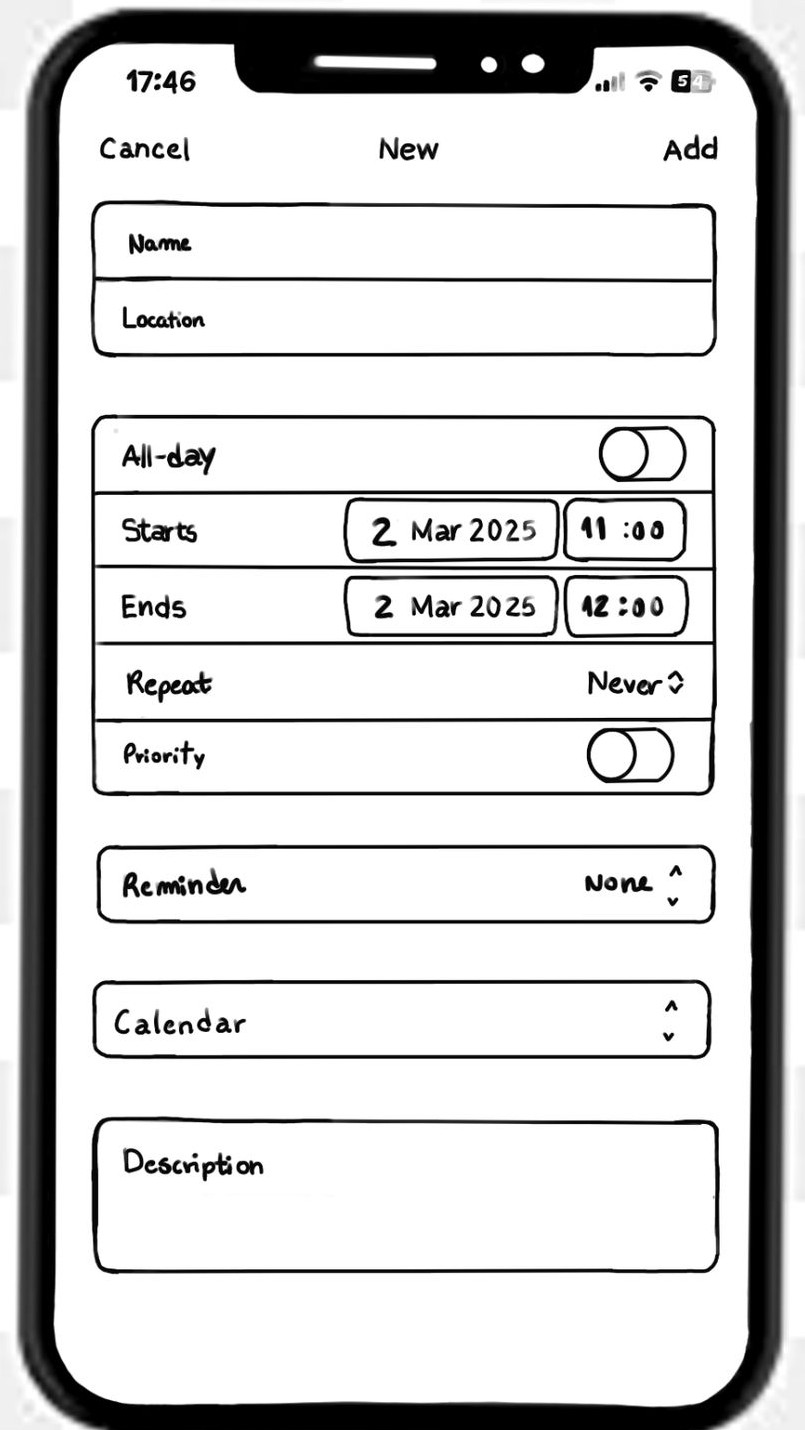 17:46 54
Cancel New Add
Name
Location
All-day
Starts 2 Mar 2025 11:00
Ends 2 Mar 2025 12:00
Repeat Never
Priority
Reminder None
Calendar
Description